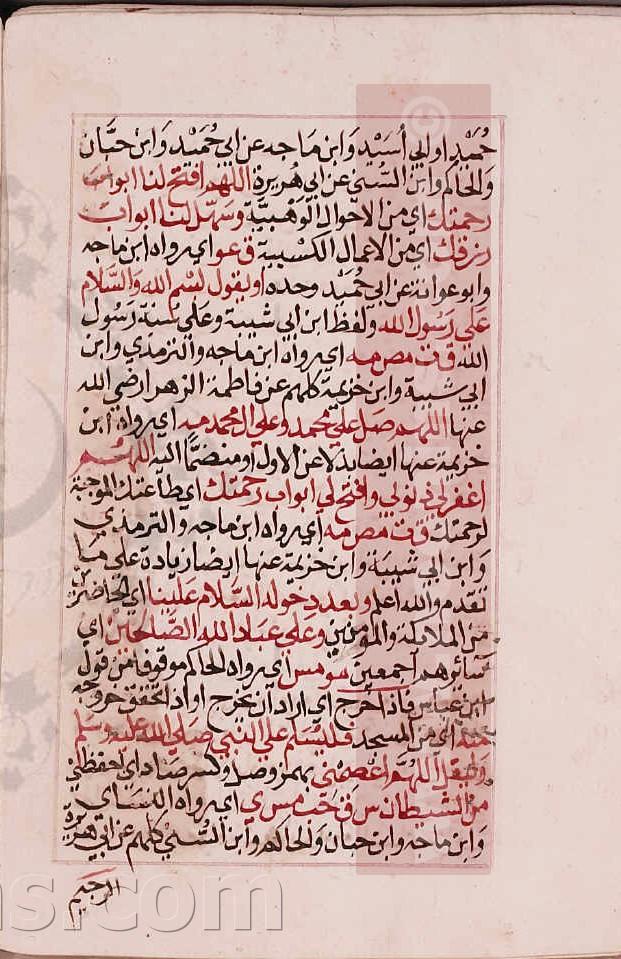 حُمَيْدٍ او ابي اُسَيْدٍ وَابن ماجه عن ابي حُمَيْدٍ وَابن حبَّان
وَالحاكم وابن السُّني عن ابي هُريرة اللهم افتح لنا ابواب
رحمتك اي من الاحوال الوَهْبيَّة وَسَهّل لنا ابوابَ
رزقك اي من الاعمال الكَسْبية ق عو اي رواه ابن ماجه
وابو عوانة عن ابي حُمَيْد وحده او يقول بسْم الله وَالسَّلام
عَلى رَسُول الله وَلفظ ابن ابي شيبة وعَلى سُنة رَسُول
الله ق ت مص مه اي رواه ابن ماجه والترمذي وابن
ابي شيبة وابن خزيمة كلهم عن فاطمة الزهرا رضي الله
عنها اللهم صل على محمد وعلى ال محمد مه اي رواه ابن
خزيمة عنها ايضا بدلا عن الاول او منضمًّا اليه اللهُم
اغفر لي ذنوبي وافتح لي ابواب رحمتك اي طاعتك الموجبة
لرحمتك ق ت مص مه اي رواه ابن ماجه والترمذي
وَابن ابي شيبة وابن خزيمة عنها ايضا زيادة على ما
تقدم والله اعلم وبعد دخوله السَّلام عَلينا اي الحاضرين
من الملائكة والمؤمنين وعَلى عباد الله الصَّالحين اي
سَائرهم اجمعين مو مس اي رواه الحاكم موقوفا من قول
ابن عباس فاذا خرج اي اراد ان يخرج او اذا تحقق خروجه
منه اي من المسجد فليُسَلم على النبي صَلى الله عليه وسلم
وَليقل اللهُمَّ اعْصمْني بهمز وصل وكسر صاد اي احفظني
من الشيطان س ق حب مس ي اي رواه النسَاي
وَابن ماجه وابن حبان وَالحاكم وابن السُّني كلهم عن ابي هريرة
الرجيم
ns.com